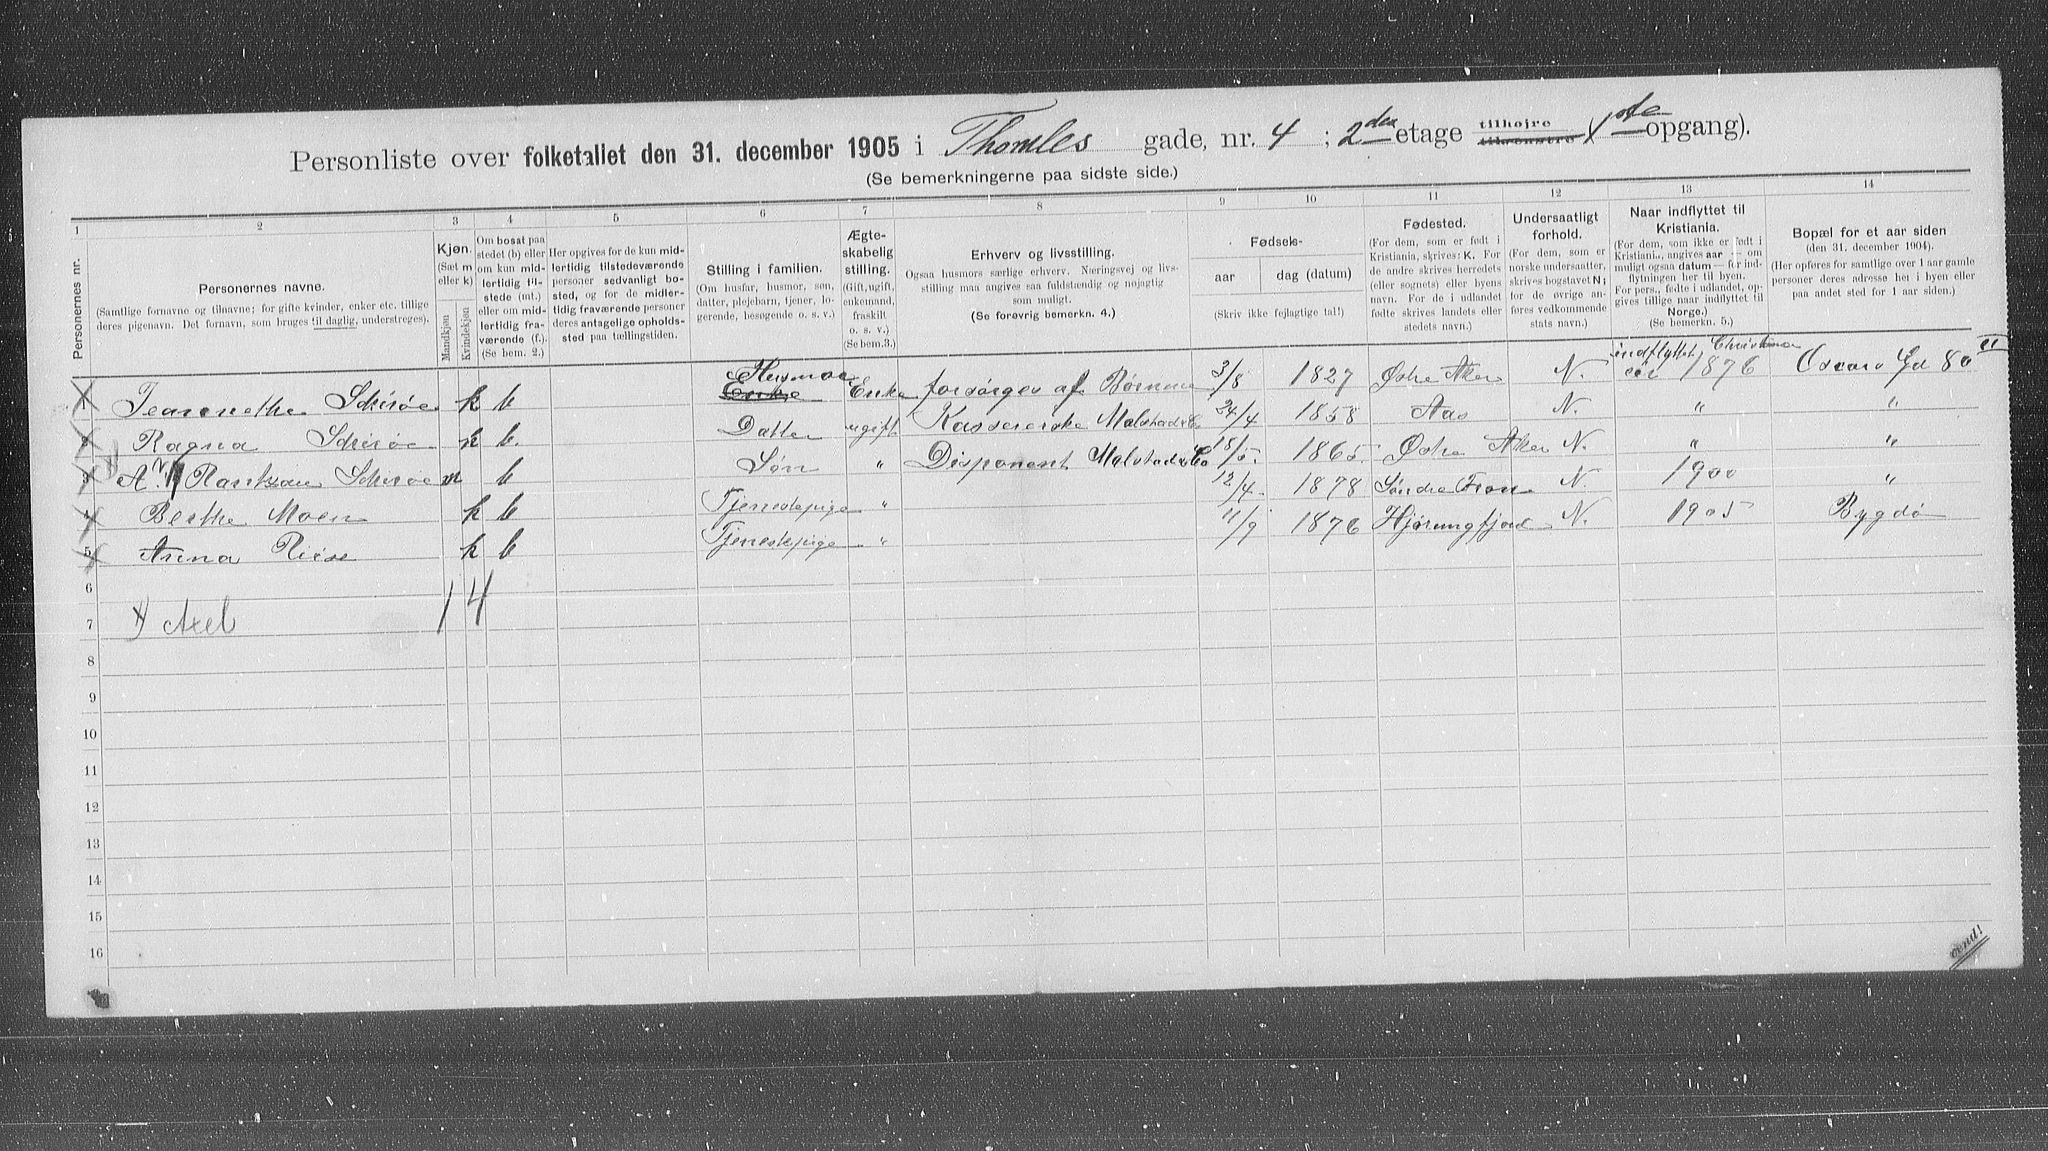 Personliste over folketallet den 31. december 1905 i Thomles gade, nr. 4 ; 2den etage tilhøjre tilvenstre 1ste opgang).
(Se bemerkningerne paa sidste side.)
1 2 3 4 5 6 7 8 9 10 11 12 13 14
Personernes nr.
Personernes navne.
(Samtlige fornavne og tilnavne; for gifte kvinder, enker etc. tillige
deres pigenavn. Det fornavn, som bruges til daglig, understreges).
Kjøn.
(Sæt m
eller k)
Mandkjøn
Kvindekjøn
Om bosat paa
stedet (b) eller
om kun mid-
lertidig til-
stede (mt.)
eller om mid-
lertidig fra-
værende (f.).
(Se bem. 2.)
Her opgives for de kun mid-
lertidig tilstedeværende
personer sedvanligt bo-
sted, og for de midler-
tidig fraværende personer
deres antagelige opholds-
sted paa tællingstiden.
Stilling i familien.
(Om husfar, husmor, søn,
datter, plejebarn, tjener, lo-
gerende, besøgende o. s. v.)
Ægte-
skabelig
stilling.
(Gift, ugift,
enkemand,
fraskilt
o. s. v.)
(Se bem. 3.)
Erhverv og livsstilling.
Ogsaa husmors særlige erhverv. Næringsvej og livs-
stilling maa angives saa fuldstændig og nøjagtig
som muligt.
(Se forøvrig bemerkn. 4.)
Fødsels-
aar dag (datum)
(Skriv ikke fejlagtige tal!)
Fødested.
(For dem, som er født i
Kristiania, skrives: K. For
de andre skrives herredets
(eller sognets) eller byens
navn. For de i udlandet
fødte skrives landets eller
stedets navn.)
Undersaatligt
forhold.
(For dem, som er
norske undersaatter,
skrives bogstavet N;
for de øvrige an-
føres vedkommende
stats navn.)
Naar indflyttet til
Kristiania.
(For dem, som ikke er født i
Kristiania, angives aar — om
muligt ogsaa datum — for ind-
flytningen her til byen.
For pers., fødte i udlandet, op-
gives tillige naar indflyttet til
Norge.)
(Se bemerkn. 5.)
Bopæl for et aar siden
(den 31. december 1904).
(Her opføres for samtlige over 1 aar gamle
personer deres adresse her i byen eller
paa andet sted for 1 aar siden.)
1 Jeannethe Schirøe k b Enke Husmor Enke forsørges af Børnene 3/8 1827 Østre Aker N. indflyttet Christiania 1876 Oscars Gd 80 II
2 Ragna Schirøe k b. Datter ugift Kassererske Malstad & Co 24/4 1858 Aas N. " "
3 A. Rantzau Schirøe m b Søn " Disponent Malstad & Co 18/5. 1865 Østre Aker N. " "
4 Berthe Moen k b Tjenestepige " 12/4. 1878 Søndre Fron N. 1900 "
5 Anna Riise k b Tjenestepige " 11/9 1876 Hjørungfjord N. 1905 Bygdø
6 1 4
7 x) Axel
8
9
10
11
12
13
14
15
16
vend!